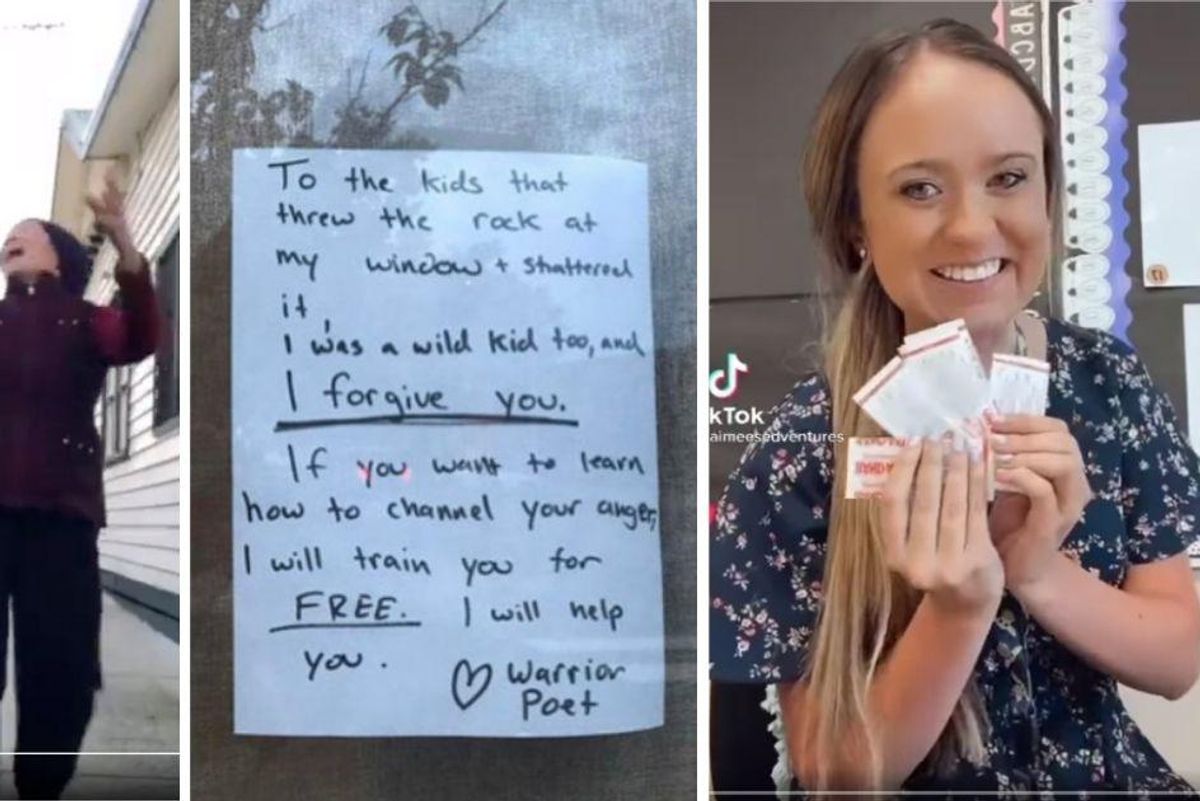 To the kids that
threw the rock at
my window + shattered
it,
I was a wild kid too, and
I forgive you.
If you want to learn
how to channel your anger,
I will train you for
FREE. I will help
you.
♡ Warrior
Poet
ABCD
kTok
aimeesedventures